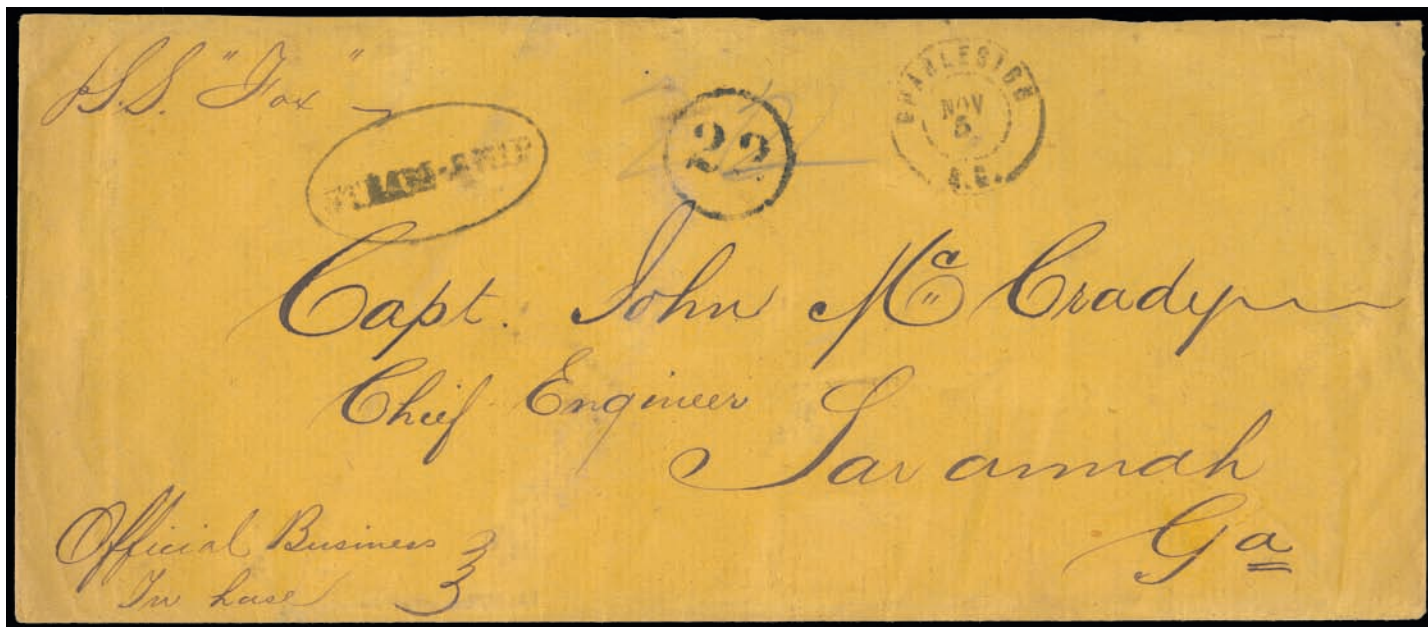 pS.S. "Fox"
STEAM-SHIP
22
22
CHARLESTON
NOV
5
S.C.
Capt. John Mc Crady
Chief Engineer
Savannah
Ga
Official Business